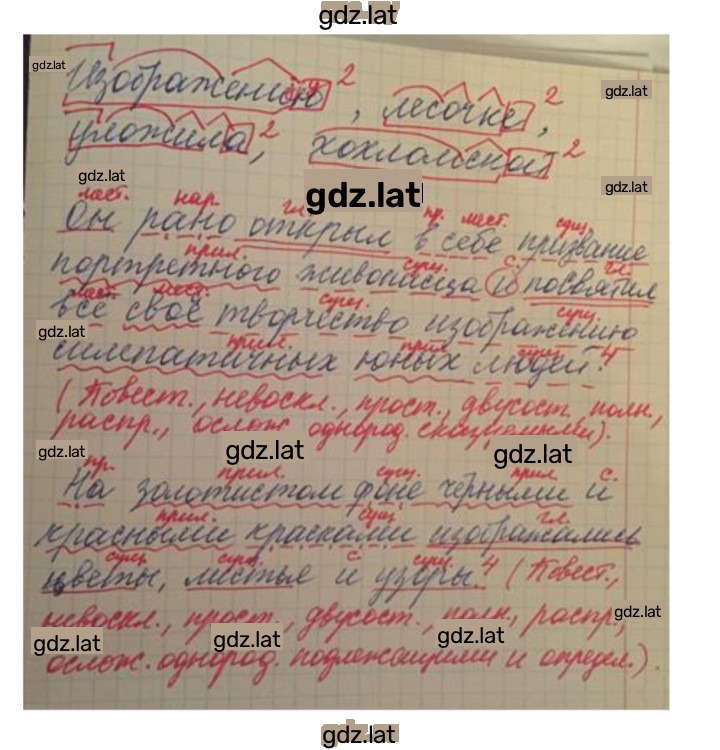 gdz.lat
gdz.lat
Изображению², лесочке²,
gdz.lat
уложила², хохломской²
gdz.lat
gdz.lat
gdz.lat
мест. нар. гл. пр. мест. сущ.
Он рано открыл в себе призвание
прил. сущ. с. гл.
портретного живописца и посвятил
мест. мест. сущ. сущ.
всё своё творчество изображению
gdz.lat
прил. прил. сущ.
симпатичных юных людей.⁴
(Повест., невоскл., прост., двусост., полн.,
распр., ослож. однород. сказуемыми).
gdz.lat
gdz.lat
gdz.lat
пр. прил. сущ. прил. с.
На золотистом фоне чёрными и
прил. сущ. гл.
красными красками изображались
сущ. сущ. с. сущ.
цветы, листья и узоры.⁴ (Повест.,
невоскл., прост., двусост., полн., распр.,
gdz.lat
gdz.lat
gdz.lat
gdz.lat
ослож. однород. подлежащими и определ.).
gdz.lat